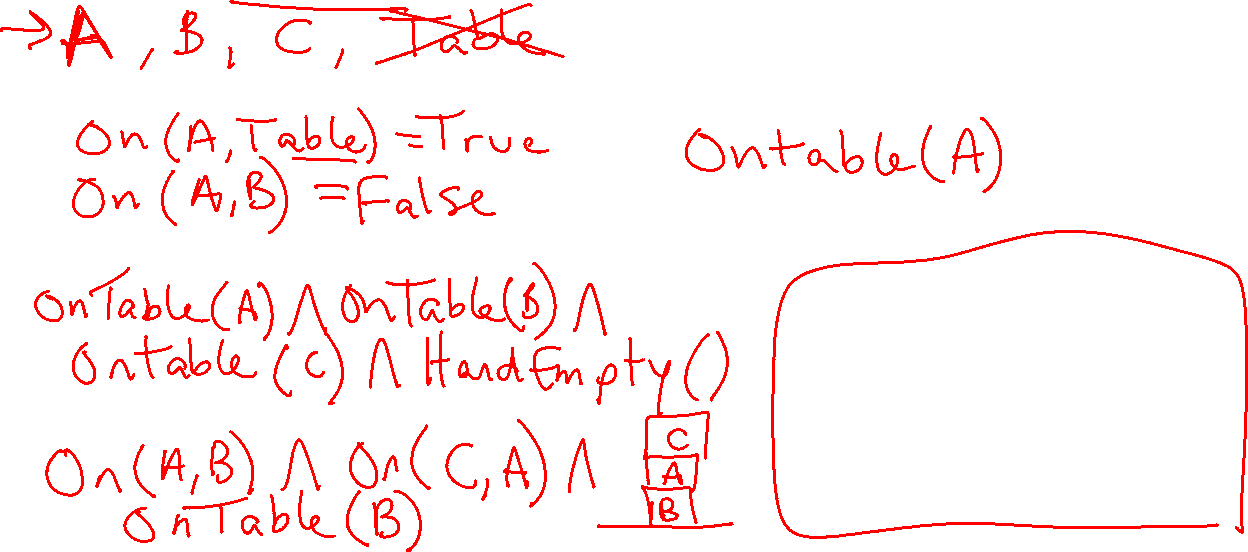 → A, B, C, Table
On(A,Table)=True
On(A,B)=False
Ontable(A)
OnTable(A) ∧ OnTable(B) ∧
Ontable(C) ∧ HandEmpty()
On(A,B) ∧ On(C,A) ∧
OnTable(B)
C
A
B